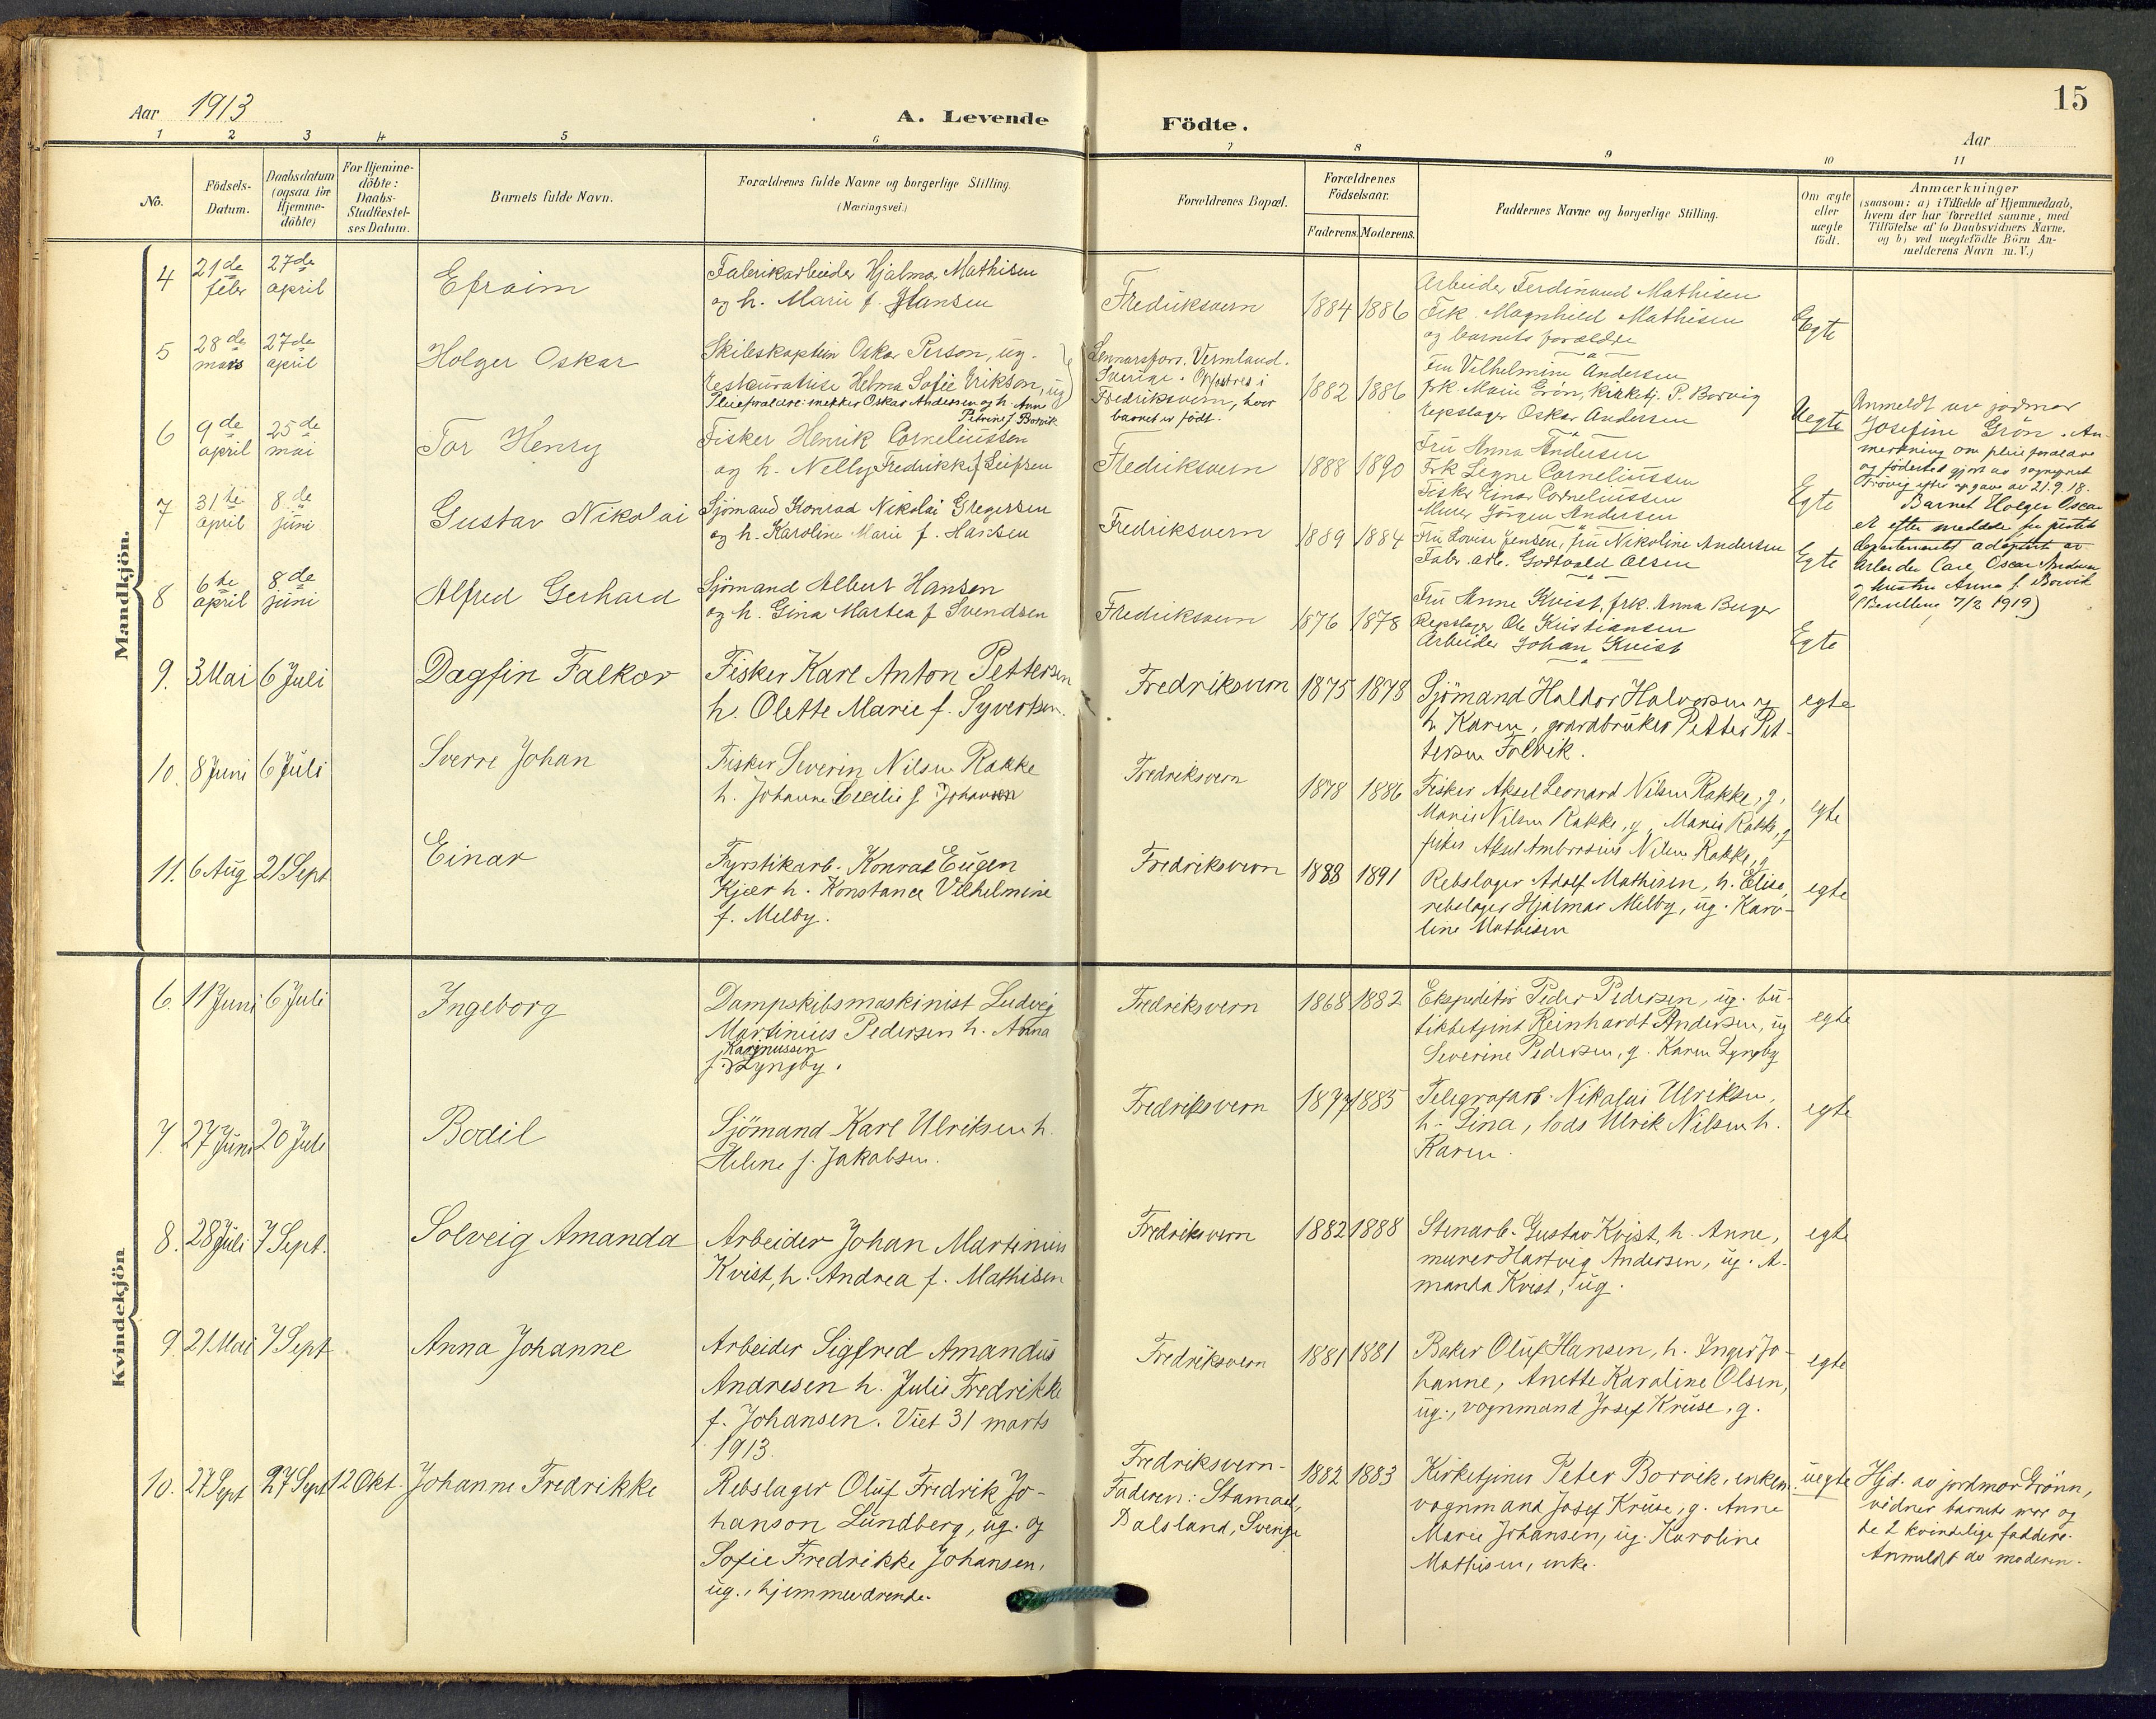 Aar 1913
A. Levende Födte.
15
Aar
1 2 3 4 5 6 7 8 9 10 11
No.
Födsels-
Datum.
Daabsdatum
(ogsaa for
Hjemme-
döbte)
For Hjemme-
döbte:
Daabs-
Stadfæstel-
ses Datum.
Barnets fulde Navn.
Forældrenes fulde Navne og borgerlige Stilling.
(Næringsvei.)
Forældrenes Bopæl.
Forældrenes
Födselsaar.
Faderens. Moderens.
Faddernes Navne og borgerlige Stilling.
Om ægte
eller
uægte
födt.
Anmærkninger
(saasom: a) i Tilfælde af Hjemmedaab,
hvem der har forrettet samme, med
Tilföielse af to Daabsvidners Navne,
og b) ved uegtefödte Börn An-
melderens Navn m. V.)
Mandkjön.
4
21de
febr
27de
april
Efraim
Fabrikarbeider Hjalmar Mathisen
og h. Marie f. Hansen
Fredriksvern
1884 1886
Arbeider Ferdinand Mathisen
Frk. Magnhild Mathisen
og barnets forældre
Egte
5
28de
mars
27de
april
Holger Oskar
Skibskaptein Oskar Person, ug.
restauratrise Helma Sofie Erikson, ug
Pleieforældre: snekker Oskar Andersen og h. Anna
Petrine f. Borvik
Lennarsfors. Vermland.
Sverige. Opfostres i
Fredriksvern, hvor
barnet er födt.
1882 1886
Fru Vilhelmine Andersen
frk. Marie Grön, kirketj. P. Borvig
repslager Oskar Andersen
Uegte
Anmeldt av jordmor
Josefine Grön. An-
merkning om pleieforældre
og födested gjort av sogneprest
efter opgave av 21.9.18.
Barnet Holger Oscar
er efter meddelelse fra justits
departementet adoptert av
arbeider Carl Oscar Andersen
og hustru Anna f. Borvik
(Bevilling 7/2 1919)
6
9de
april
25de
mai
Tor Henry
Fisker Henrik Corneliussen
og h. Nelly Fredrikke f. Leifsen
Fredriksvern
1888 1890
Fru Anna Andersen
Frk Signe Corneliussen
Fisker Einar Corneliussen
Murer Jörgen Andersen
Egte
7
31te
april
8de
juni
Gustav Nikolai
Sjömand Konrad Nikolai Gregersen
og h. Karoline Marie f. Hansen
Fredriksvern
1889 1884
Fru Lovise Jensen, fru Nikoline Andersen
Fabr. arb. Godtvald Olsen
Egte
8
6te
april
8de
juni
Alfred Gerhard
Sjömand Albert Hansen
og h. Gina Martea f Svendsen
Fredriksvern
1876 1878
Fru Anne Kvist, frk. Anna Berger
Repslager Ole Kristiansen
Arbeider Johan Kvist
Egte
9. 3 Mai 6 Juli
Dagfin Falkor
Fisker Karl Anton Pettersen
h. Olette Marie f. Syvertsen.
Fredriksvern
1875 1878
Sjömand Haldor Halvorsen og
h. Karen, gaardbruker Petter Pet-
tersen Folvik.
egte
10. 8 Juni 6 Juli
Sverre Johan
Fisker Severin Nilsen Rakke
h. Johanne Cecilie f. Johansen
Fredriksvern
1878 1886
Fisker Aksel Leonard Nilsen Rakke, g,
Marie Nilsen Rakke, g, Marie Rakke, g
fisker Aksel Ambrosius Nilsen Rakke, g
egte
11. 6 Aug 21 Sept
Einar
Fyrstikarb. Konrad Eugen
Kjær h. Konstance Vilhelmine
f. Melby.
Fredriksvern
1888 1891
Rebslager Adolf Mathisen, h. Elise,
rebslager Hjalmar Melby, ug. Karo-
line Mathisen
egte
Kvindekjön
6. 11 Juni 6 Juli
Ingeborg
Dampskibsmaskinist Ludvig
Martinius Pedersen h. Anna
Rasmussen
f. Lyngby.
Fredriksvern
1868 1882
Ekspeditör Peder Pedersen, ug. bu-
tikbetjent Reinhardt Andersen, ug
Severine Pedersen, g. Karen Lyngby
egte
7. 27 Juni 20 Juli
Bodil
Sjömand Karl Ulriksen h.
Helene f. Jakobsen.
Fredriksvern
1877 1885
Telegrafarb. Nikolai Ulriksen,
h. Lina, lods Ulrik Nilsen h.
Karen.
egte
8. 28 Juli 7 Sept.
Solveig Amanda
Arbeider Johan Martinius
Kvist, h. Andrea f. Mathisen
Fredriksvern
1882 1888
Stenarb. Gustav Kvist, h. Anne,
murer Hartvig Andersen, ug. A-
manda Kvist, ug.
egte
9. 21 Mai 7 Sept
Anna Johanne
Arbeider Sigfred Amandus
Andresen h. Julie Fredrikke
f. Johansen. Viet 31 marts
1913.
Fredriksvern
1881 1881
Baker Oluf Hansen, h. Inger Jo-
hanne, Anette Karoline Olsen,
ug., vognmand Josef Kruse, g.
egte
10. 27 Sept 27 Sept 12 Okt.
Johanne Fredrikke
Rebslager Oluf Fredrik Jo-
hanson Lundberg, ug. og
Sofie Fredrikke Johansen,
ug., hjemmeværende.
Fredriksvern-
Faderen: Stamael,
Dalsland, Sverige
1882 1883
Kirketjener Peter Borvik, enkem.
vognmand Josef Kruse, g. Anne
Marie Johansen, ug. Karoline
Mathisen, enke.
uegte
Hjd. av jordmor Grönn,
vidner barnets mor og
de 2 kvindelige faddere.
Anmeldt av moderen.